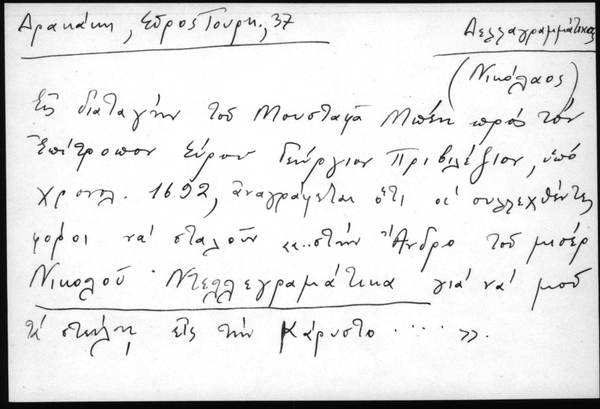 Δρακάκη, Σύρος Τουρκ., 37
Δελλαγραμμάτικας
(Νικόλαος)
Εἰς διαταγήν τοῦ Μουσταφᾶ Μπέη πρός τόν
Ἐπίτροπον Σύρου Γεώργιον Πριβιλέξιον, ὑπό
χρονολ. 1692, ἀναγράφεται ὅτι οἱ συλλεχθέντες
φόροι νά σταλοῦν «..στήν Ἄνδρο τοῦ μισέρ
Νικολοῦ Ντελλεγραμάτικα γιά νά μοῦ
τά στείλῃ εἰς τήν Κάρυστο ....».